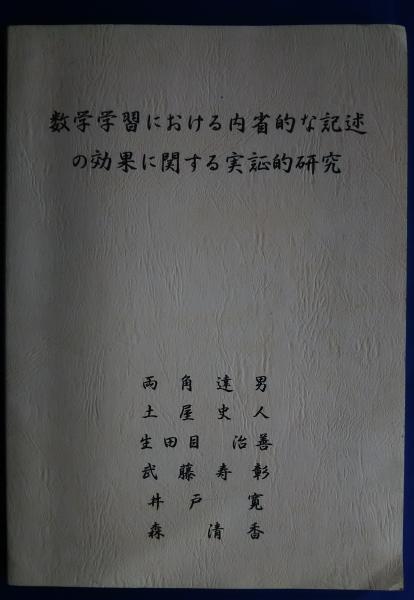 数学学習における内省的な記述
の効果に関する実証的研究
両角達男
土屋史人
生田目治善
武藤寿彰
井戸寛
森清香